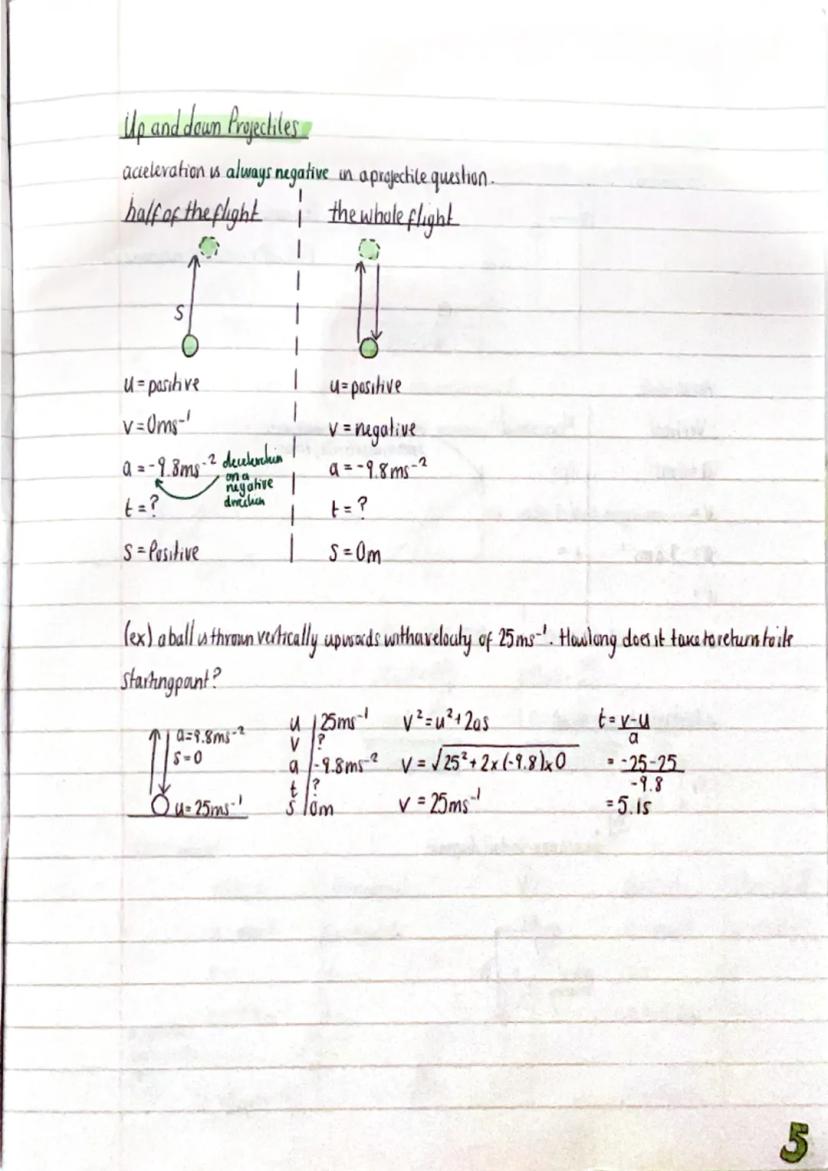 Up and down Projectiles
acceleration is always negative in a projectile question.
half of the flight
the whole flight
S
u = positive
v = 0ms⁻¹
a = -9.8ms⁻² deceleration
on a
negative
direction
t = ?
S = Positive
u = positive
v = negative
a = -9.8ms⁻²
t = ?
S = 0m
(ex) a ball is thrown vertically upwards with a velocity of 25ms⁻¹. How long does it take to return to its
starting point?
a=9.8ms⁻²
S=0
u=25ms⁻¹
u | 25ms⁻¹
v | ?
a | -9.8ms⁻²
t | ?
S | 0m
v² = u² + 2as
v = √25² + 2 x (-9.8) x 0
v = 25ms⁻¹
t = v-u
a
= -25-25
-9.8
= 5.1s
5